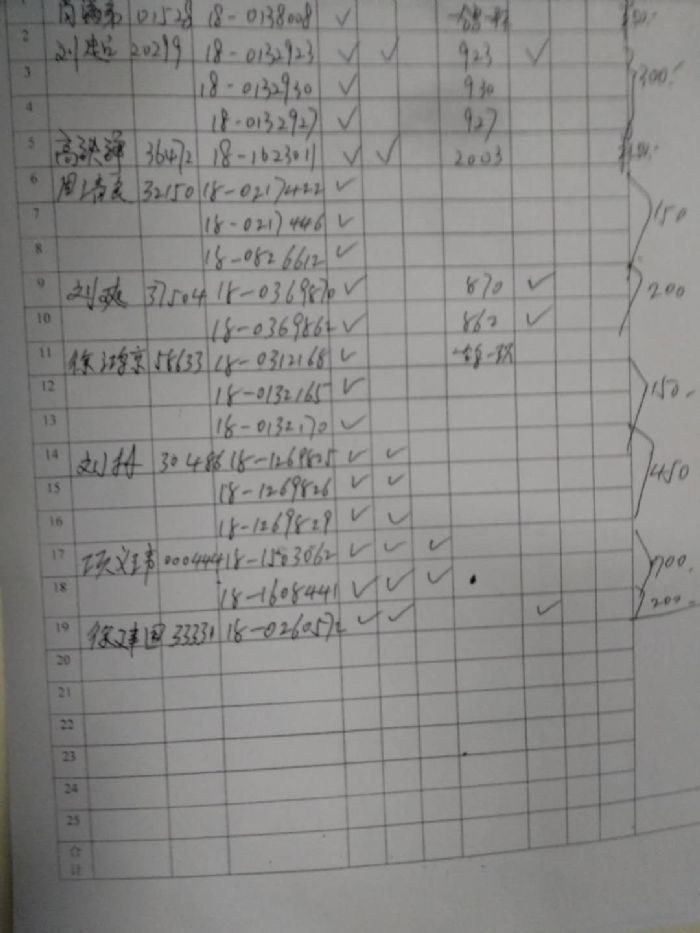 01528 18-0138008 ✓
2 20299 18-0132923 ✓ ✓ 923 ✓
3 18-0132930 ✓ 930 300.
4 18-0132927 ✓ 927
5 36472 18-1623011 ✓ ✓ 2003
6 32150 18-0217422 ✓
7 18-0217446 ✓ 150
8 18-0826612 ✓
9 刘斌 37504 18-0369870 ✓ 870 ✓ 200
10 18-0369862 ✓ 862 ✓
11 58633 18-0312168 ✓
12 18-0132165 ✓ 150.
13 18-0132170 ✓
14 30486 18-1269805 ✓ ✓
15 18-1269826 ✓ ✓ 450
16 18-1269829 ✓ ✓
17 000444 18-1583062 ✓ ✓ ✓
18 18-1608441 ✓ ✓ ✓ 200
19 徐建国 33331 18-0260572 ✓ ✓ ✓
20
21
22
23
24
25
合计